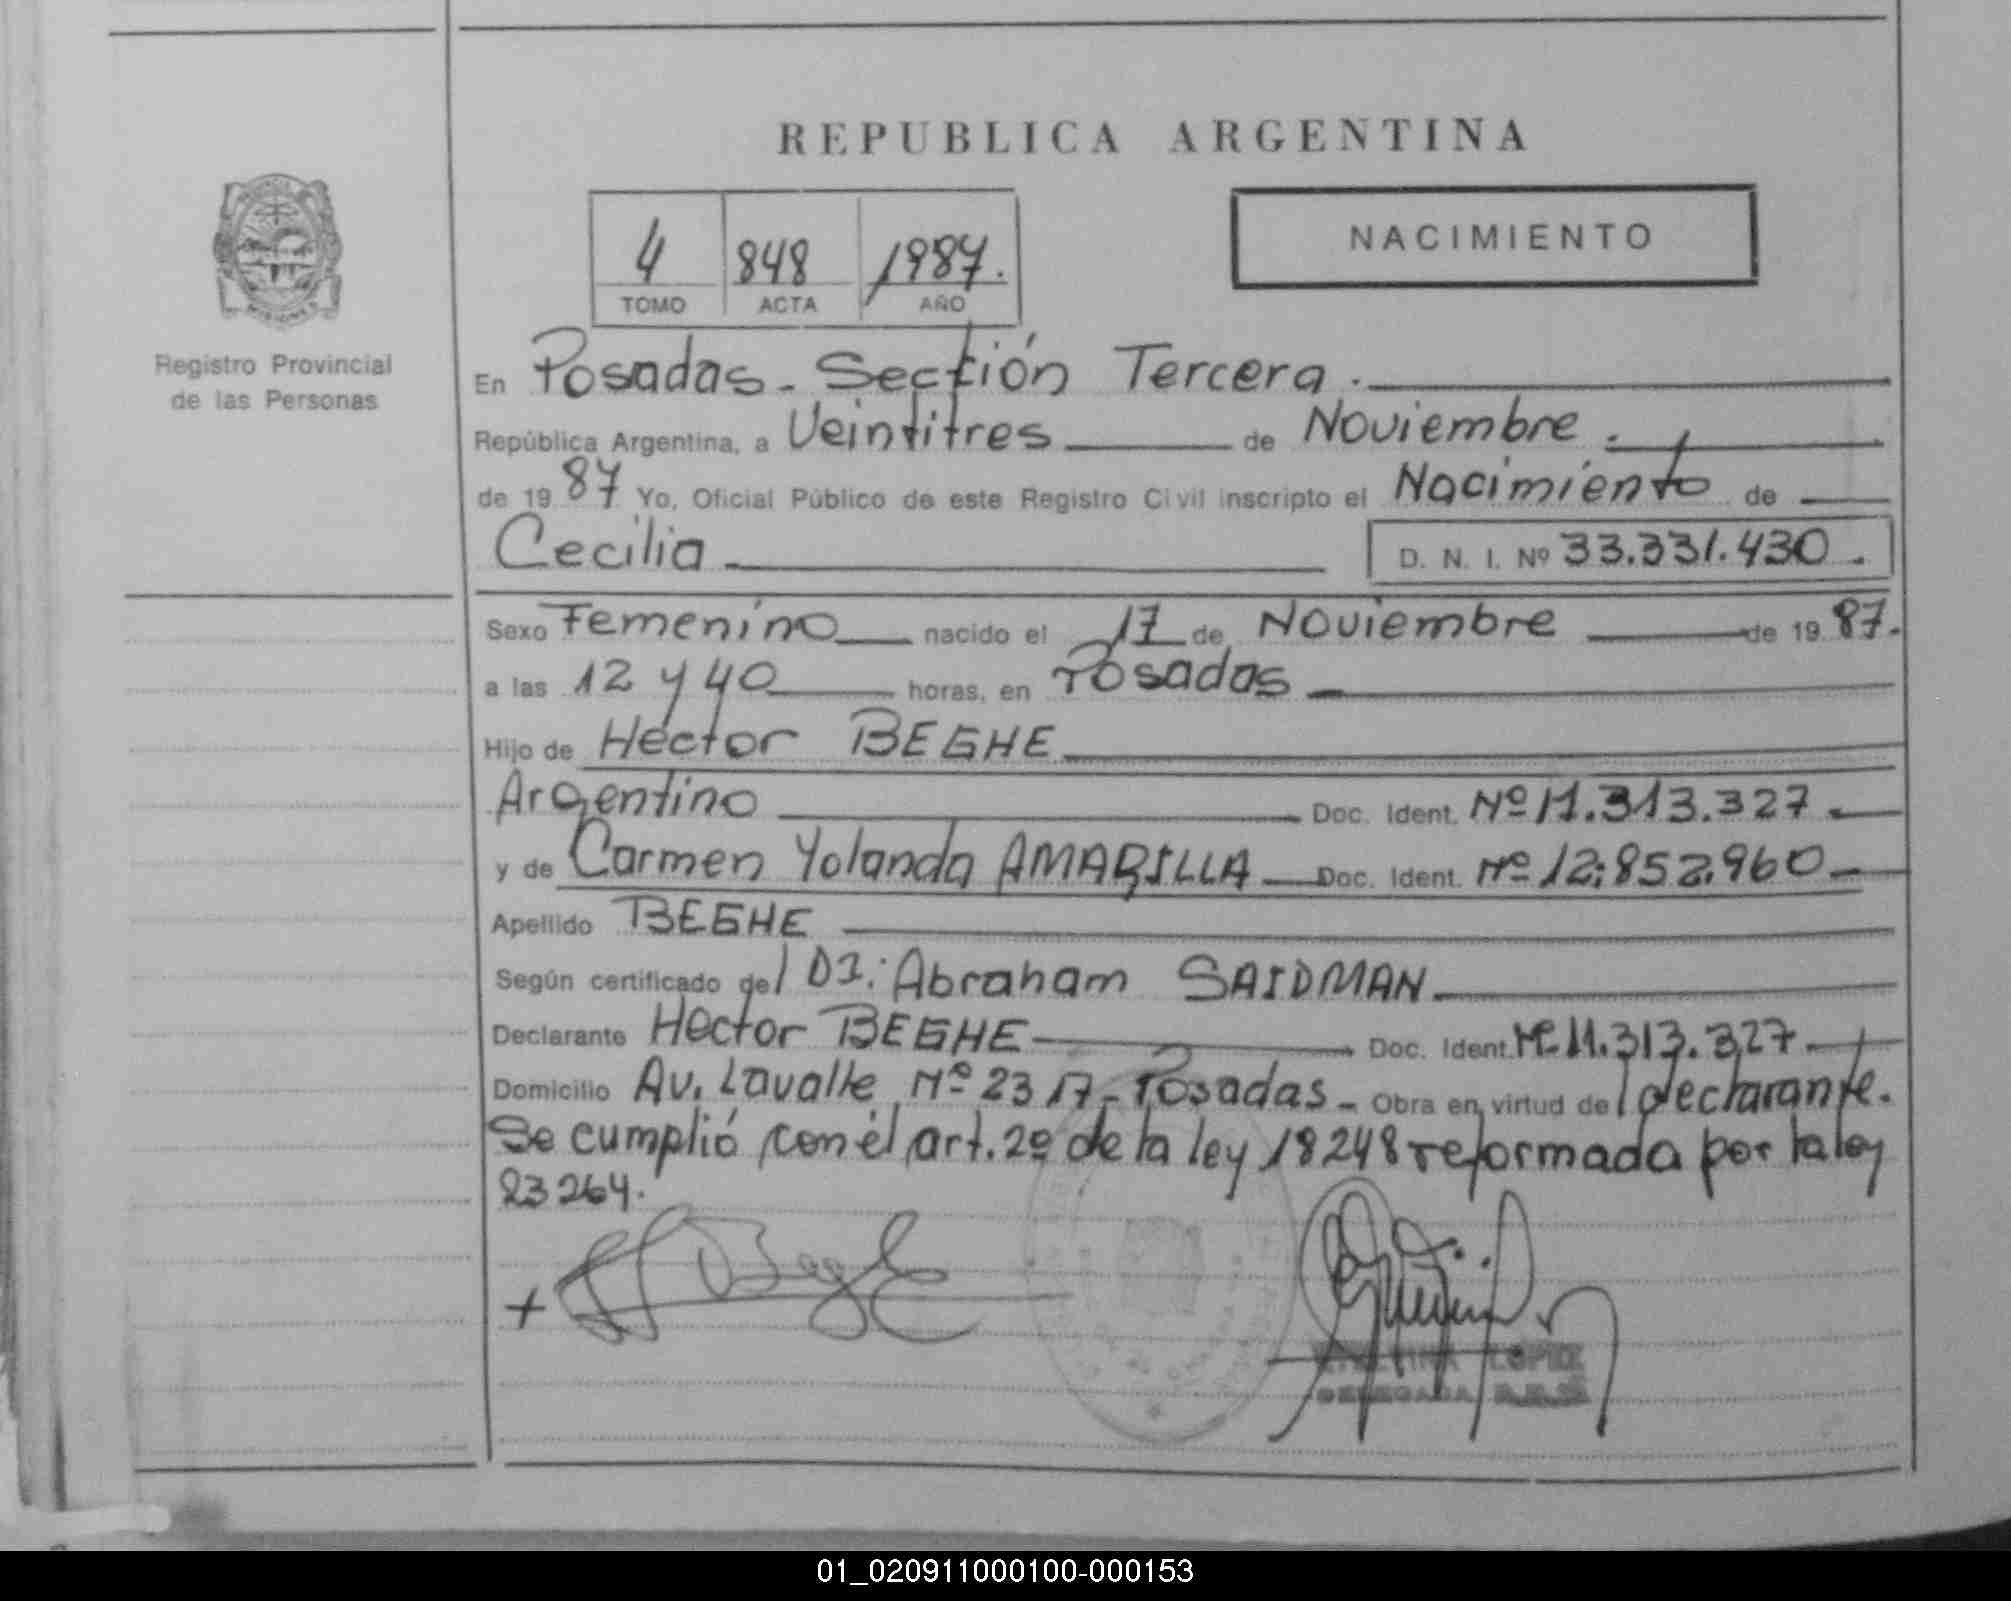 REPUBLICA ARGENTINA
4 848 1987.
TOMO ACTA AÑO
NACIMIENTO
Registro Provincial
de las Personas
En Posadas - Sección Tercera.
República Argentina, a Veintitres de Noviembre.
de 19 87 Yo, Oficial Público de este Registro Civil inscripto el Nacimiento de
Cecilia D. N. I. Nº 33.331.430.
Sexo Femenino nacido el 17 de Noviembre de 19 87.
a las 12 y 40 horas, en Posadas
Hijo de Héctor BEGHE
Argentino Doc. Ident. Nº 11.313.327
y de Carmen Yolanda AMARILLA Doc. Ident. Nº 12.852.960
Apellido BEGHE
Según certificado del Dr. Abraham SAIDMAN
Declarante Hector BEGHE Doc. Ident. Nº 11.313.327
Domicilio Av. Lavalle Nº 2317 - Posadas - Obra en virtud del declarante.
Se cumplió con el art. 2º de la ley 18248 reformada por la ley
23264.
LOPEZ
DELEGADA
01_020911000100-000153